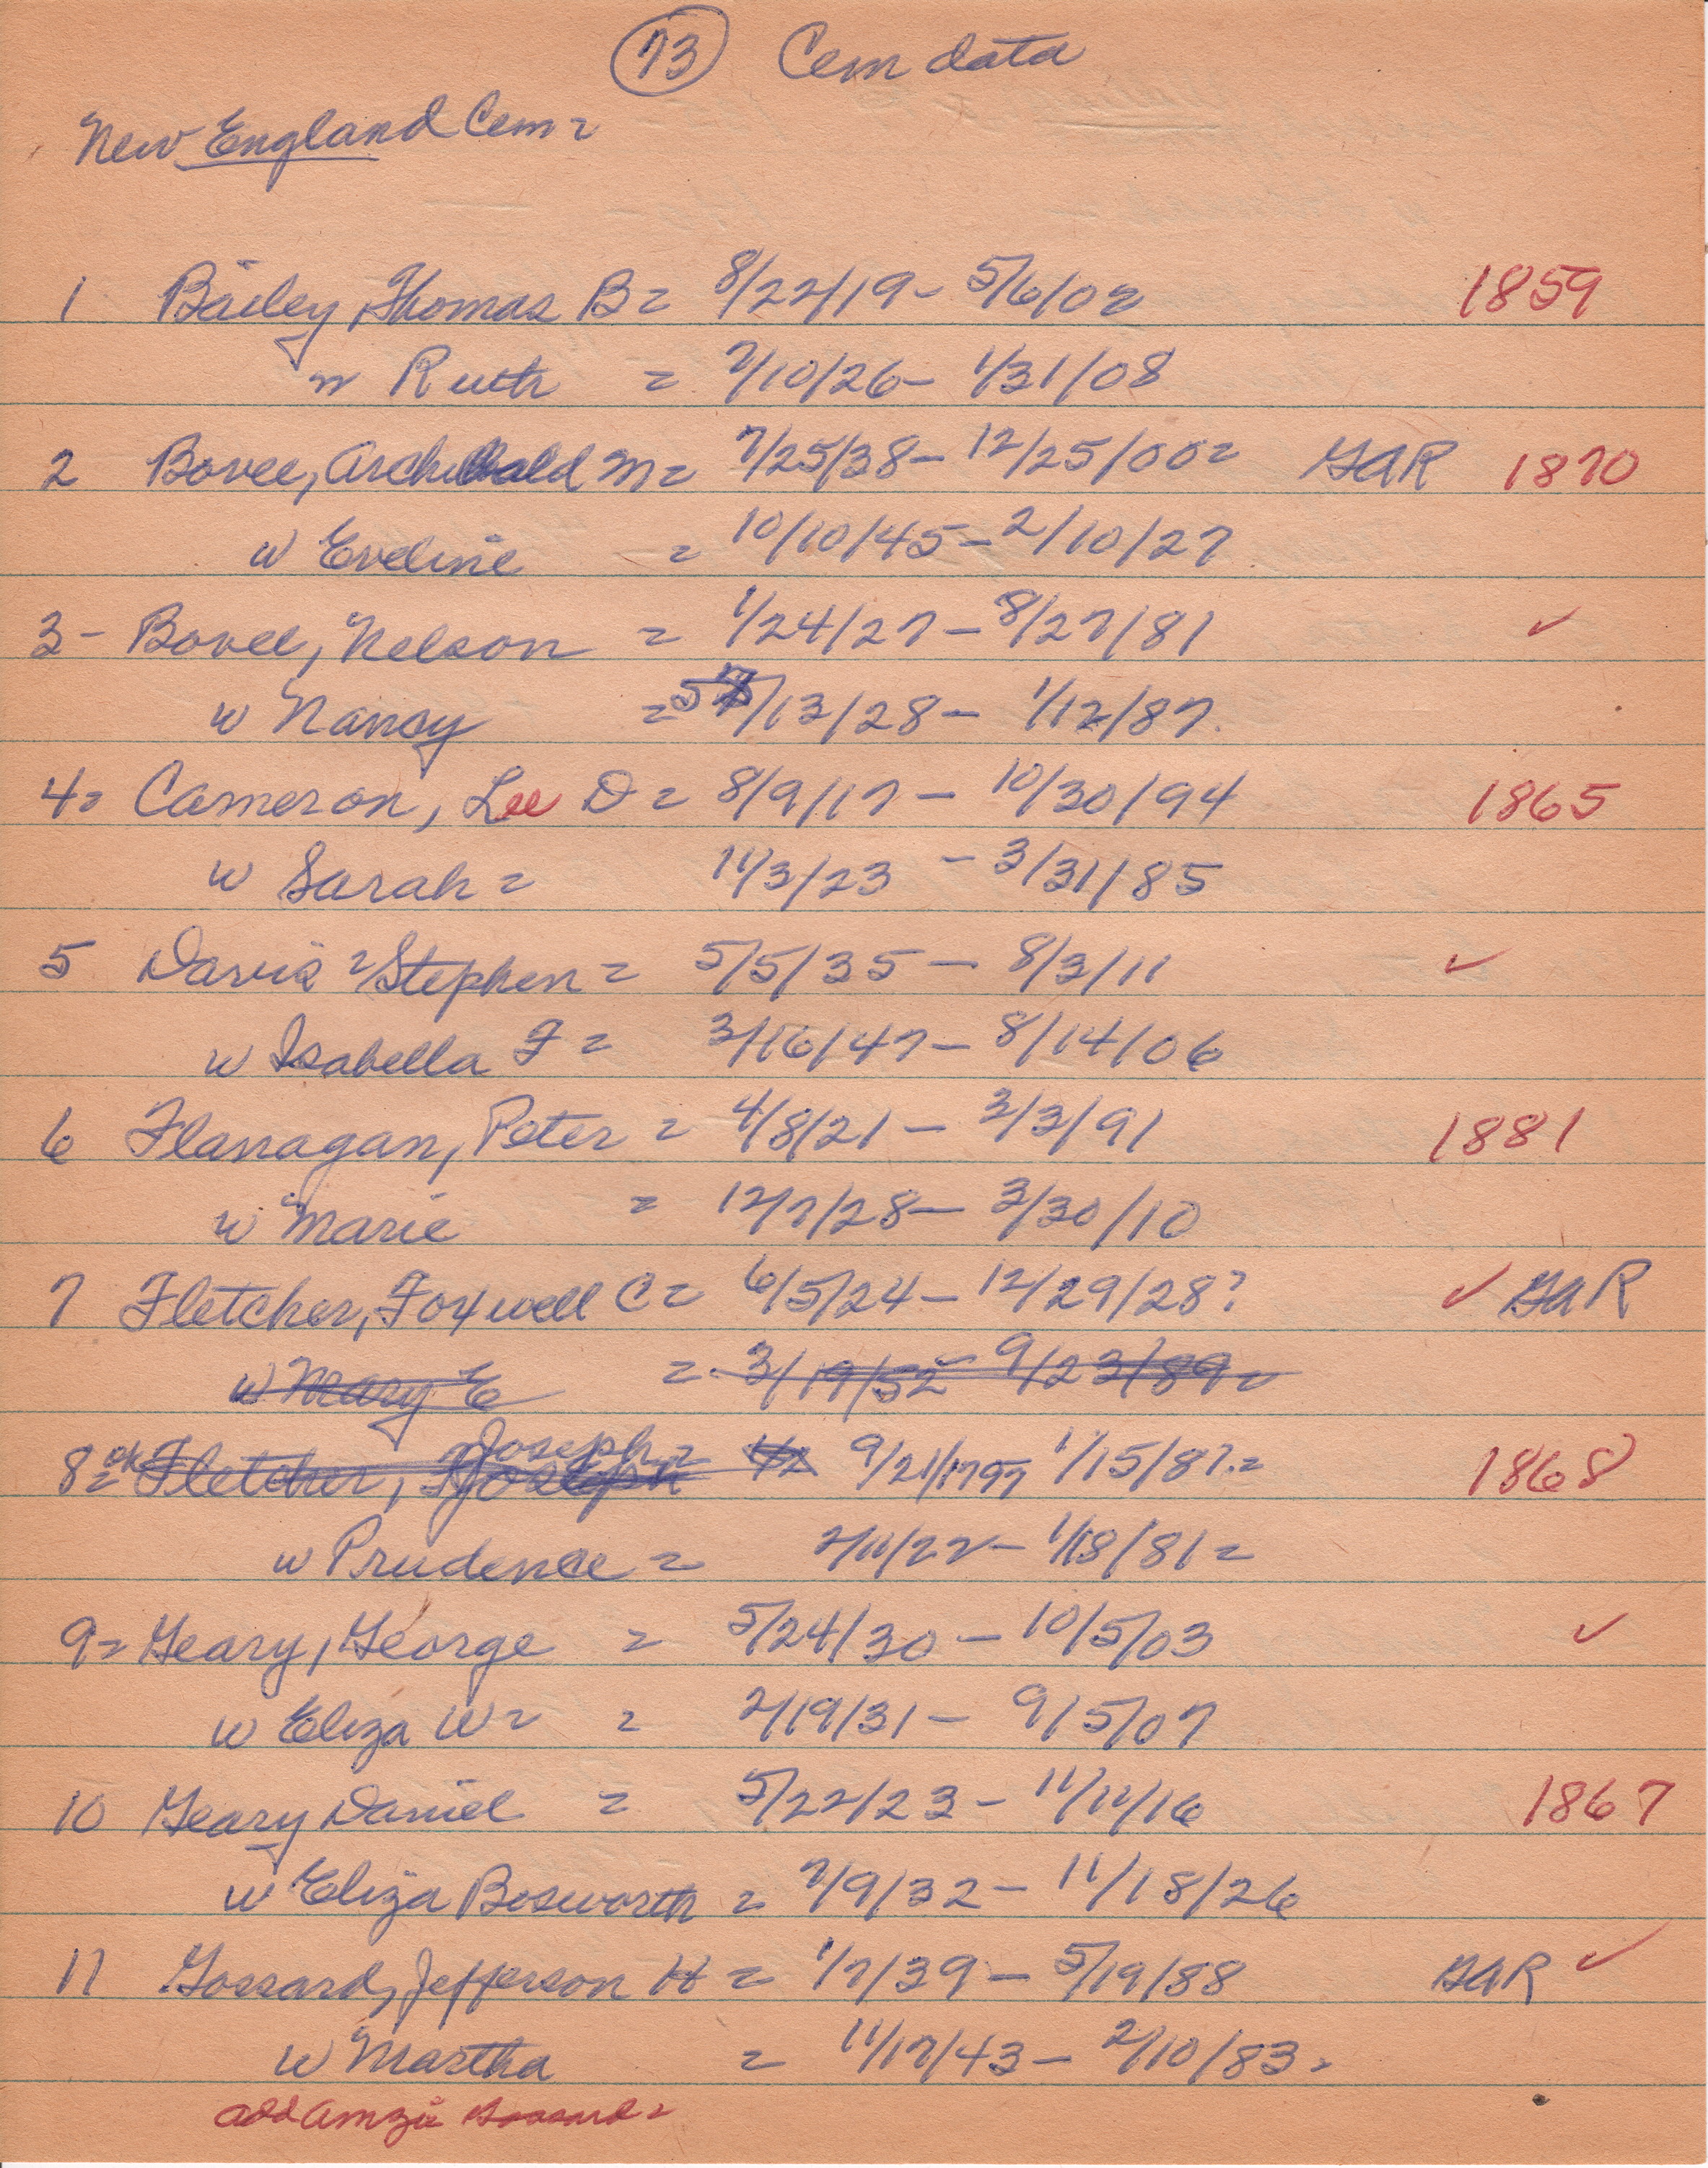 73 Cem data
New England Cem =
1 Bailey, Thomas B = 8/22/19 - 5/6/02 1859
w Ruth = 7/10/26 - 1/31/08
2 Bovee, Archibald M = 7/25/38 - 12/25/00 = GAR 1870
w Eveline = 10/10/45 - 2/10/27
3 - Bovee, Nelson = 1/24/27 - 8/27/81 ✓
w Nancy = 5/13/28 - 1/12/87.
4 = Cameron, Lee D = 8/9/17 - 10/30/94 1865
w Sarah = 11/3/23 - 3/31/85
5 Davis = Stephen = 5/5/35 - 8/3/11 ✓
w Isabella F = 3/16/47 - 8/14/06
6 Flanagan, Peter = 4/8/21 - 3/3/91 1881
w Marie = 12/7/28 - 3/30/10
7 Fletcher, Foxwell C = 6/5/24 - 12/29/28? ✓ GAR
w Mary E = 3/19/52 - 9/23/89 =
8 = ok Fletcher, Joseph = 9/21/1797 1/15/87. = 1868
w Prudence = 2/11/22 - 1/18/81 =
9 = Geary, George = 5/24/30 - 10/5/03 ✓
w Eliza W = = 2/19/31 - 9/5/07
10 Geary Daniel = 5/22/23 - 11/11/16 1867
w Eliza Bosworth = 7/9/32 - 11/18/26
11 Gossard, Jefferson H = 1/7/39 - 5/19/88 GAR ✓
w Martha = 11/17/43 - 2/10/83 -
add Amzie Gossard =